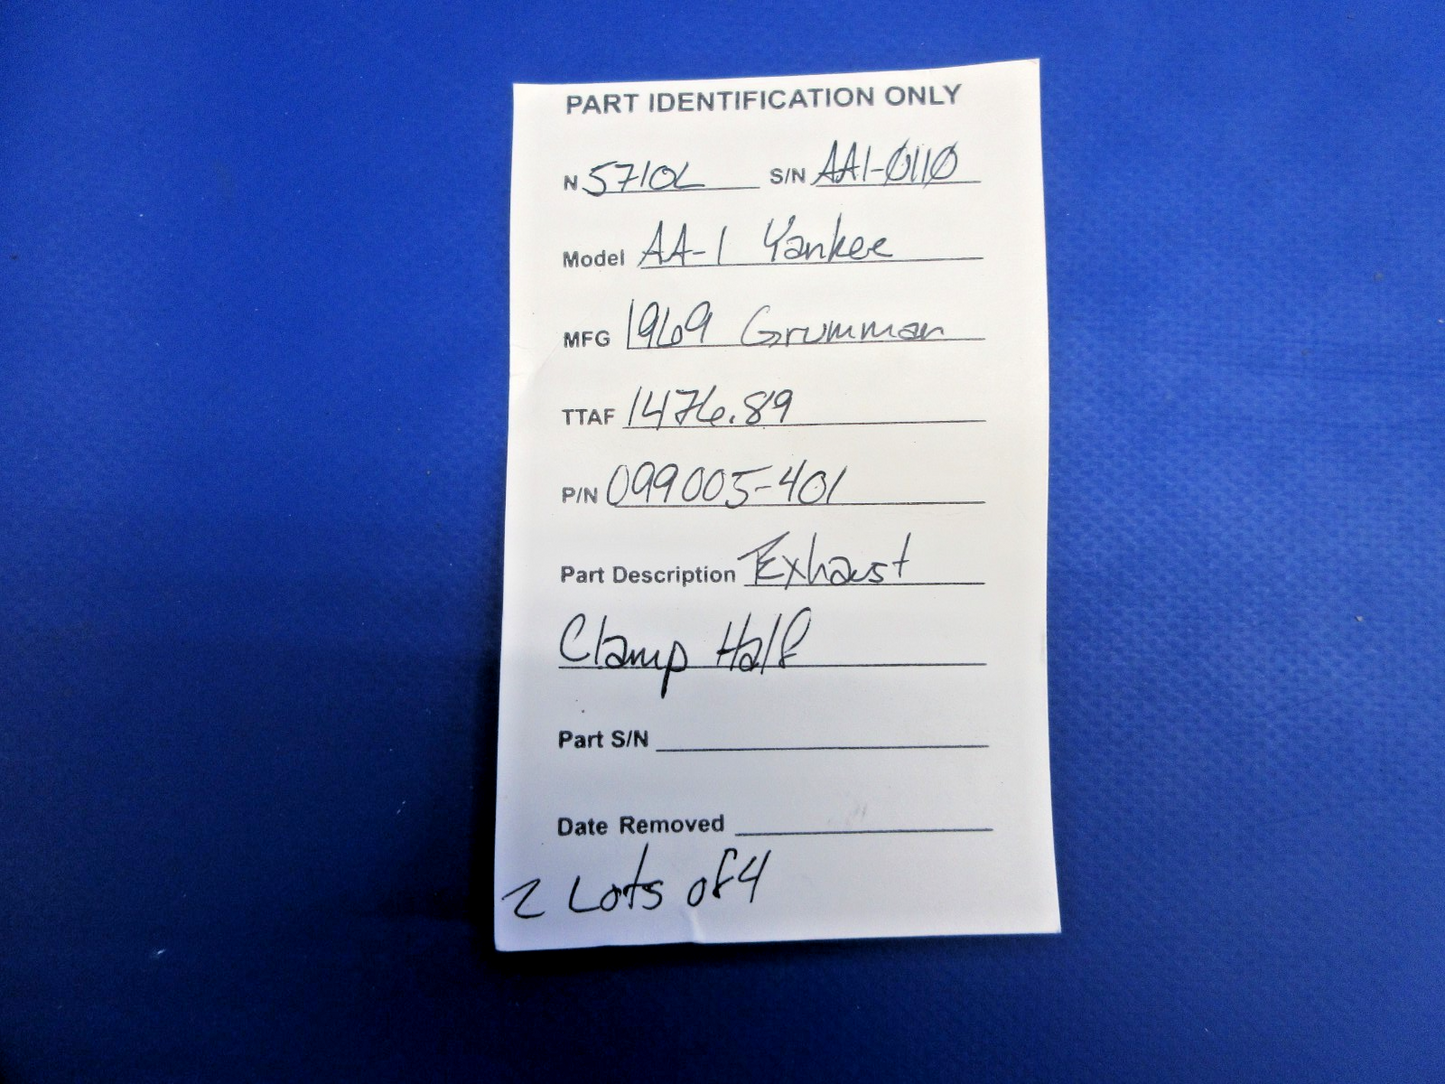 PART IDENTIFICATION ONLY
N 5710L S/N AA1-0110
Model AA-1 Yankee
MFG 1969 Grumman
TTAF 1476.89
P/N 099005-401
Part Description Exhaust
Clamp Half
Part S/N
Date Removed
2 Lots of 4